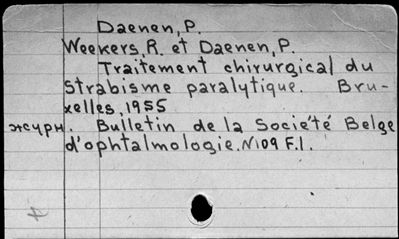 Daenen, P.
Weekers, R. et Daenen, P.
Traitement chirurgical du
strabisme paralytique. Bru-
xelles, 1955
журн. Bulletin de la Société Belge
d'ophtalmologie. N109 F.I.